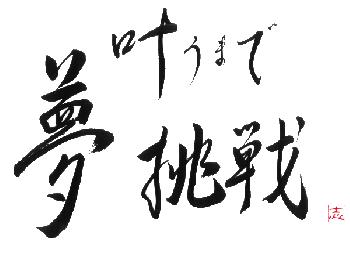 夢
叶うまで
挑戦